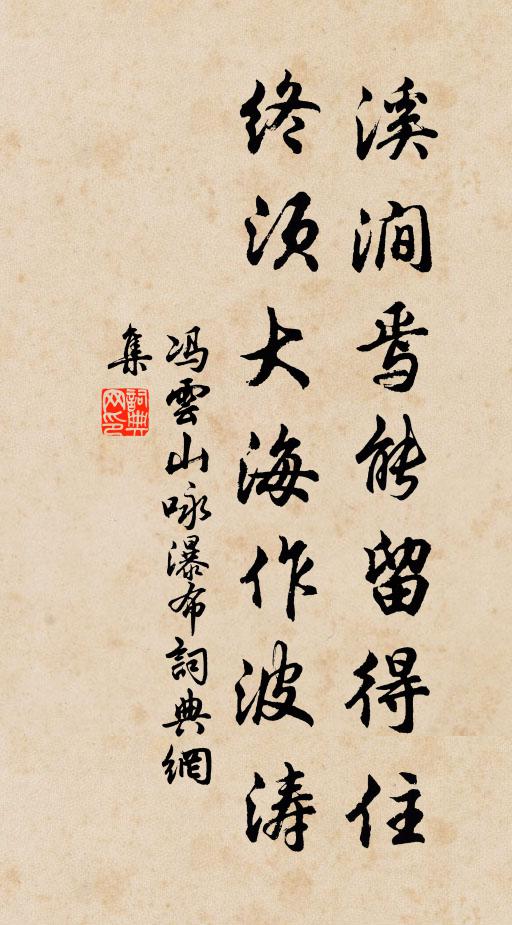 溪澗焉能留得住
终须大海作波涛
冯雲山咏瀑布詞典網
集
詞典网印